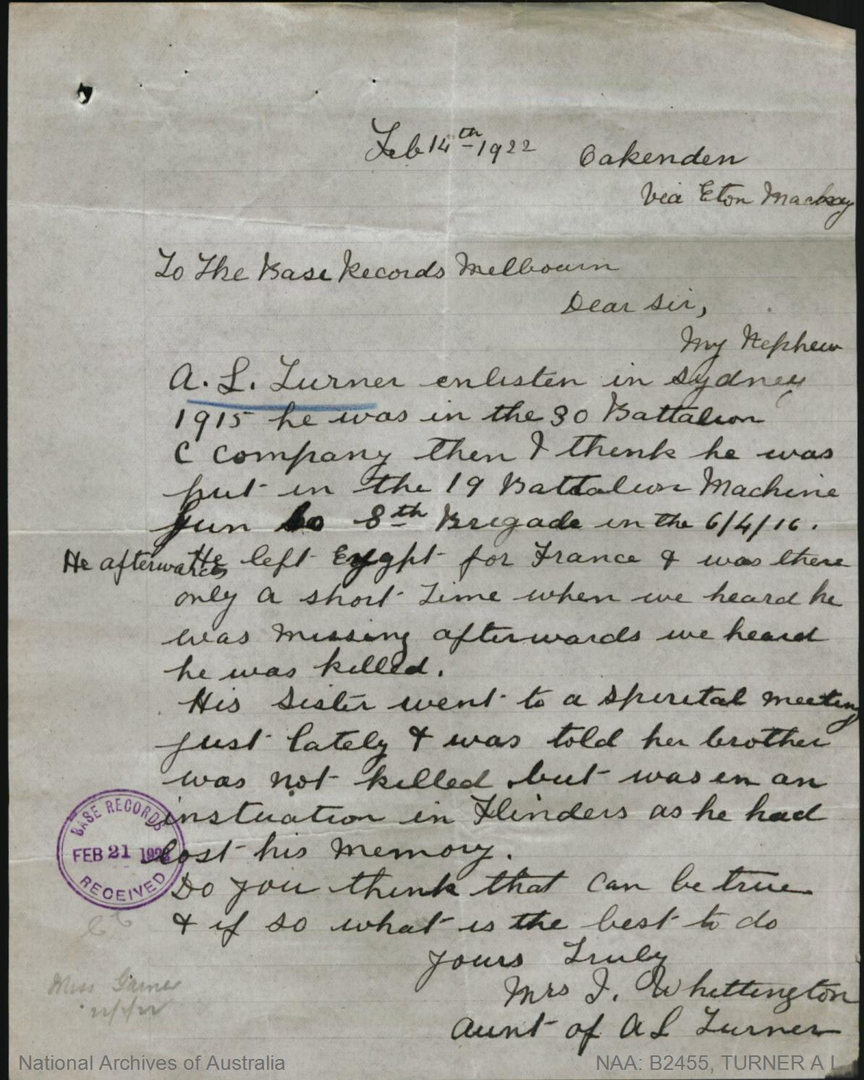 Feb 14th 1922 Oakenden
Via Eton Mackay
To The Base Records Melbourn
Dear Sir,
My Nephew
A. L. Turner enlisten in Sydney
1915 he was in the 30 Battalion
C Company then I think he was
put in the 19 Battalion Machine
Gun 8th Brigade in the 6/4/16.
He afterwards He left Eygpt for France & was there
only a short time when we heard he
was missing afterwards we heard
he was killed.
His sister went to a spirital meeting
just lately & was told her brother
was not killed but was in an
instuation in Flinders as he had
lost his memory.
Do you think that can be true
& if so what is the best to do
Yours Truly
Mrs I. Whittington
Aunt of A L Turner
BASE RECORDS
FEB 21 1922
RECEIVED
Miss
National Archives of Australia NAA: B2455, TURNER A L